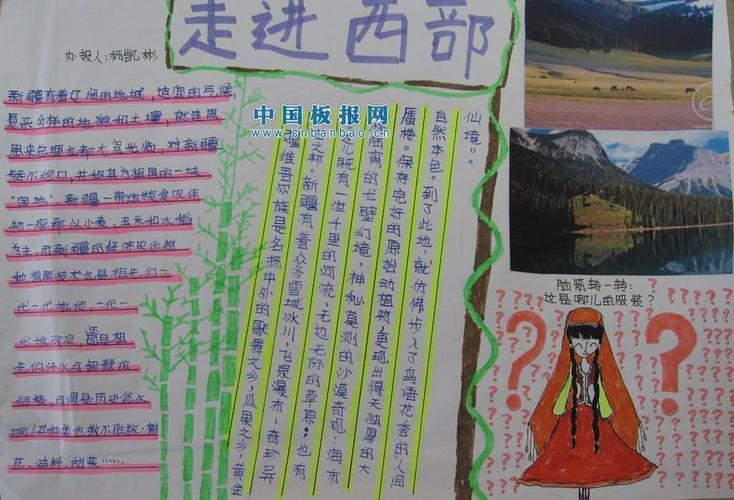 走进西部
办报人:杨凯彬
新疆有着辽阔的地域,适宜的气候,
复杂多样的地貌和土壤,就连周
恩来总理也都大驾光临,对新疆
赞不绝口,并称其为祖国的一块
“宝地”新疆一带的粮食农作
物一般都以小麦、玉米和水稻
为主,而新疆的经济农作物
种植技术也是祖先们一
代一代地传,一代一
代地改良
先们汗水与智慧的
结晶
花、油籽、甜菜……
中国板报网
www.cnbanbao.cn
仙境”。
自然本色。到了此地,就仿佛步入了鸟语花香的“人间
蜃楼。保存完好的原始动植物,更现出得天独厚的大
的戈壁幻境,神秘莫测的沙漠奇观:海市
既有一泄千里的河流,无边无际的草原;也有
之邦。新疆有着众多雪域冰川,飞泉瀑布,奇珍异
疆维吾尔族是名扬中外的歌舞之乡,瓜果之乡,黄金
脑筋转一转:
这是哪儿的服装?